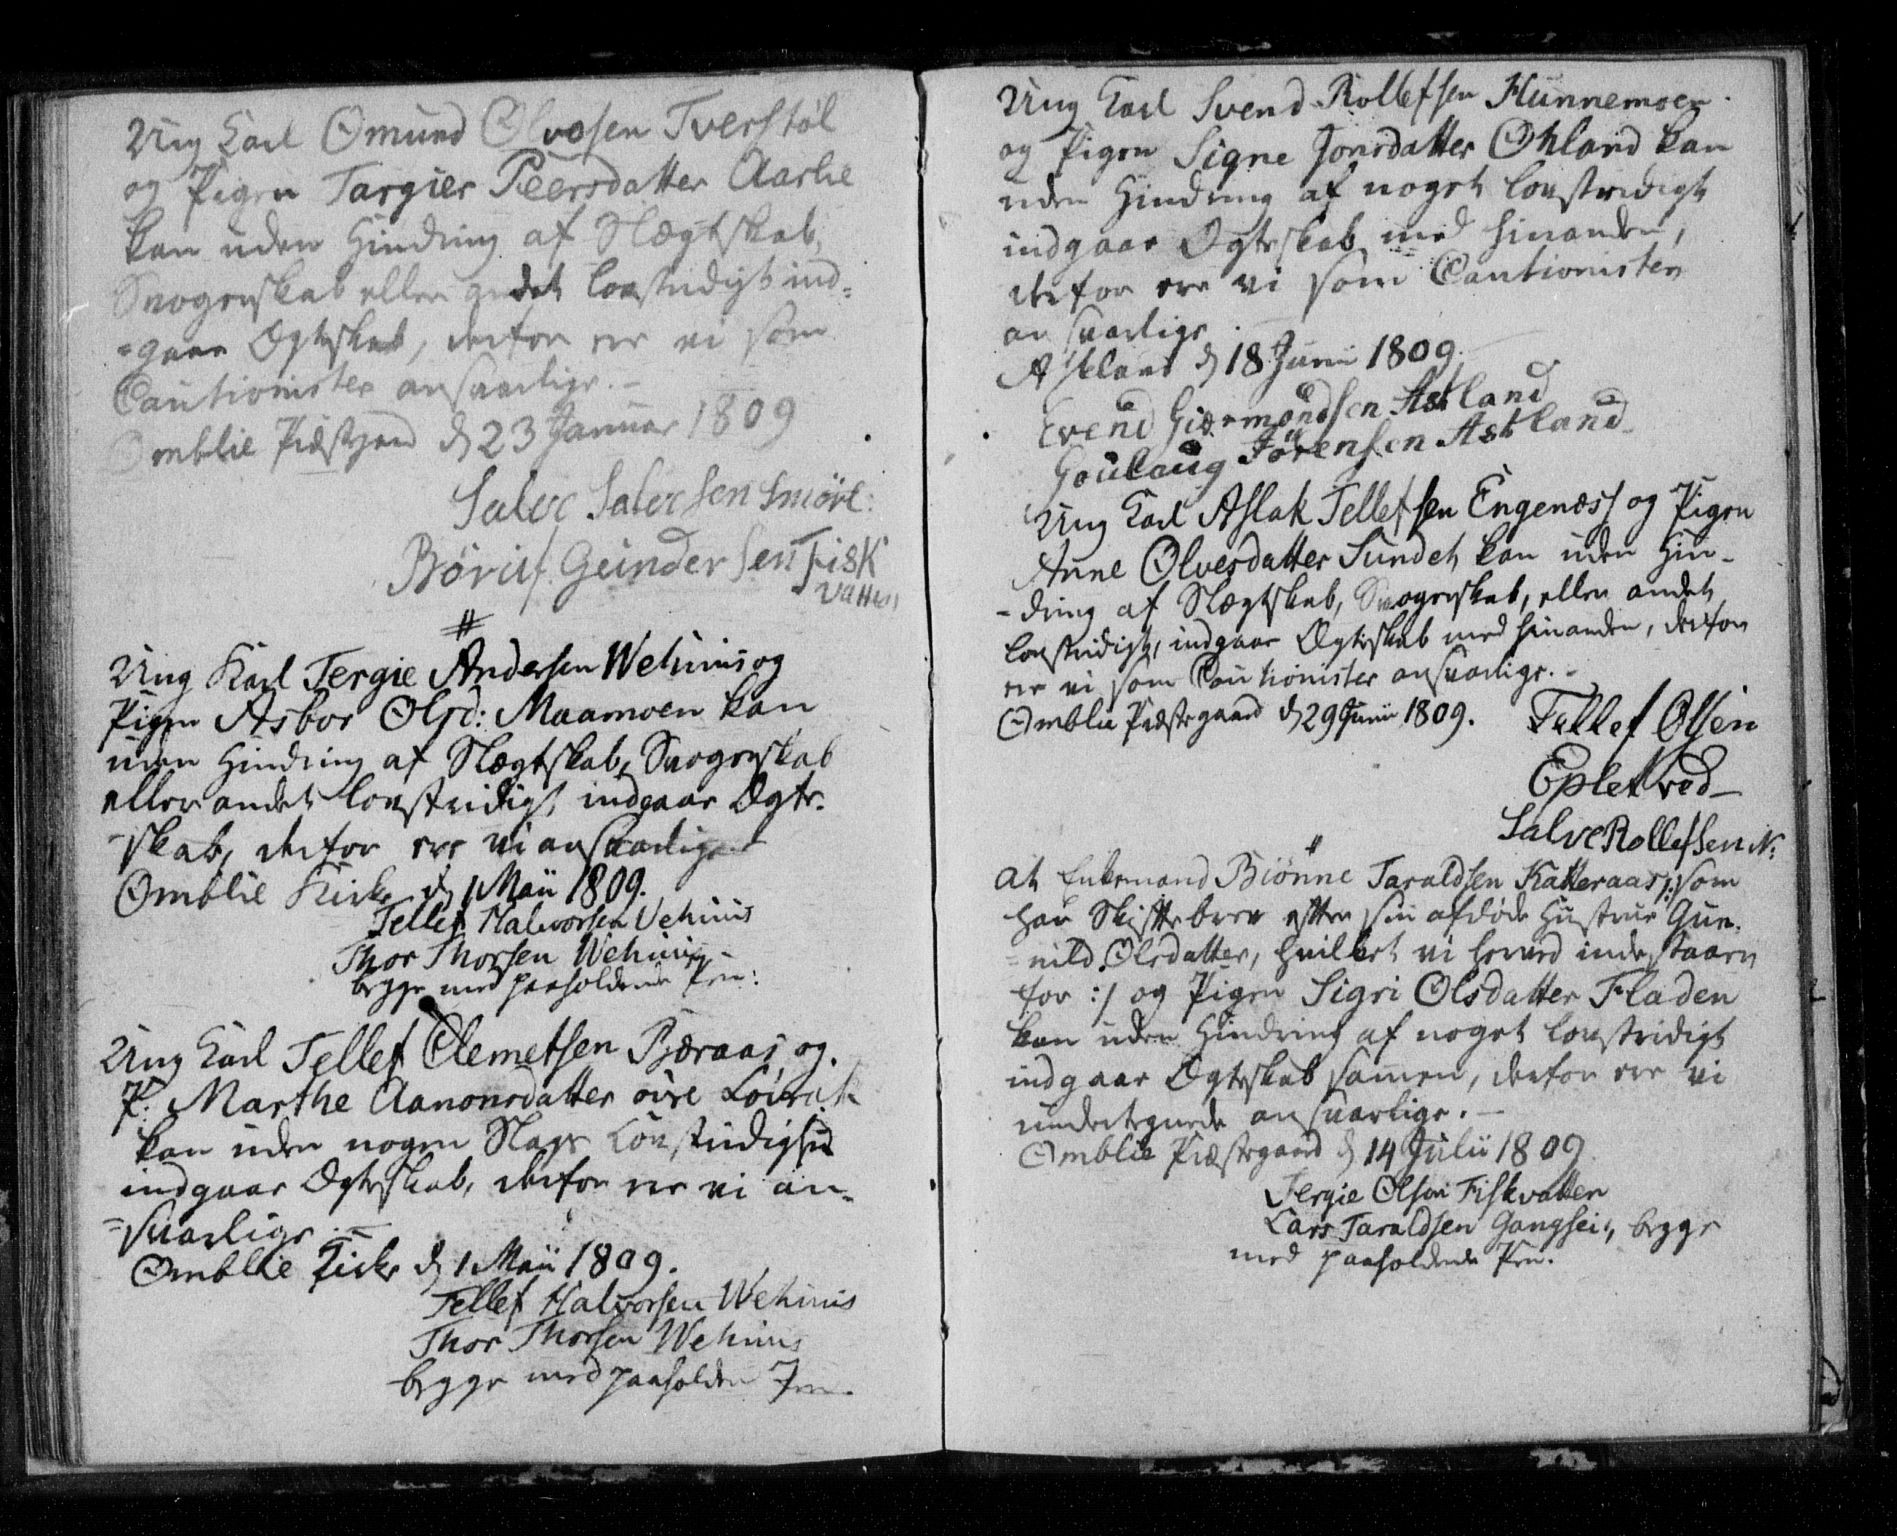 Ung Karl Omund Olvosen Tverstøl
og Pigen Targier Peersdatter Aarlie
kan uden Hindring af Slægtskab,
Svogerskab eller andet lovstridigt ind=
=gaae Ægteskab, derfor ere vi som
Cautionister ansvarlige.-
Omblie Præstgaard d 23 Januar 1809
Salve Salvesen Smøre:
Børiuf Gundersen Fisk
vatten
#
Ung Karl Tergie Andersen Wehuus og
Pigen Asbor Olsd: Maamoen kan
uden Hindring af Slægtskab, Svogerskab
eller andet lovstridigt indgaae Ægte-
-skab, derfor ere vi ansvarlige
Omblie Kirke d 1 Maii 1809.
Tellef Halvorsen Vehuus
Thor Thorsen Wehuus
begge med paaholdende Pen:
Ung Karl Tellef Clemetsen Bæraas og
P: Marthe Aanonsdatter øvre Løvrak
kan uden nogen Slags Lovstridighed
indgaae Ægteskab, derfor ere vi an-
=svarlige.-
Omblie Kirke d 1 Maii 1809.
Tellef Halvorsen Wehuus
Thor Thorsen Wehuus
begge med paaholden Pen.
Ung Karl Svend Rollefsen Hunnemoen
og Pigen Signe Jonsdatter Ohland kan
uden Hindring af noget lovstridigt
indgaae Ægteskab med hinanden,
derfor ere vi som Cautionister
ansvarlige.
Askland d 18 Junii 1809.
Evend Giermondsen Askland
Goulaug Jörensen Askland
Ung Karl Aslak Tellefsen Engenæss og Pigen
Anne Olvesdatter Sundet kan uden Hin-
-dring af Slægtskab, Svogerskab, eller andet
lovstridigt, indgaae Ægteskab med hinanden, derfor
ere vi som Cautionister ansvarlige.-
Omblie Præstegaard d 29 Junii 1809. Tellef Olsen
Epletved
Salve Rollefsen N:
"
At Enkemand Biønne Taraldsen Katteraas /: som
har Skiftebrev efter sin afdøde Hustrue Gun-
=nild Olsdatter, hvilket vi herved indestaaer
for :/ og Pigen Sigri Olsdatter Fladen
kan uden Hindring af noget lovstridigt
indgaae Ægteskab samen, derfor ere vi
undertegnede ansvarlige.-
Omblie Præstegaard d 14 Julii 1809
Tergie Olson Fiskvatten
Lars Taraldsen Gangsei, begge
med paaholdende Pen.